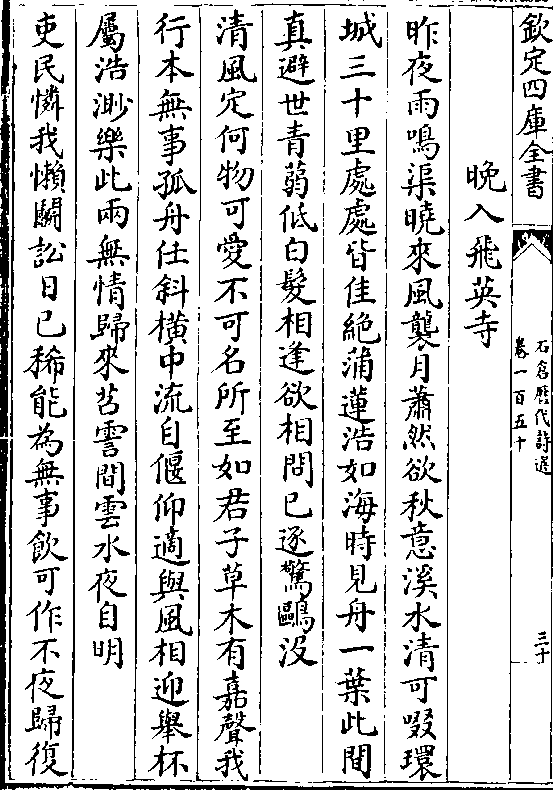 欽定四庫全書
石倉歷代詩選
卷一百五十
三十
晚入飛英寺
昨夜雨鳴渠曉來風襲月蕭然欲秋意溪水清可啜環
城三十里處處皆佳絶蒲蓮浩如海時見舟一葉此間
真避世青蒻低白髮相逢欲相問已逐驚鷗没
清風定何物可愛不可名所至如君子草木有嘉聲我
行本無事孤舟任斜橫中流自偃仰適與風相迎舉杯
屬浩渺樂此兩無情歸來苕霅間雲水夜自明
吏民憐我懶鬭訟日已稀能為無事飲可作不夜歸復